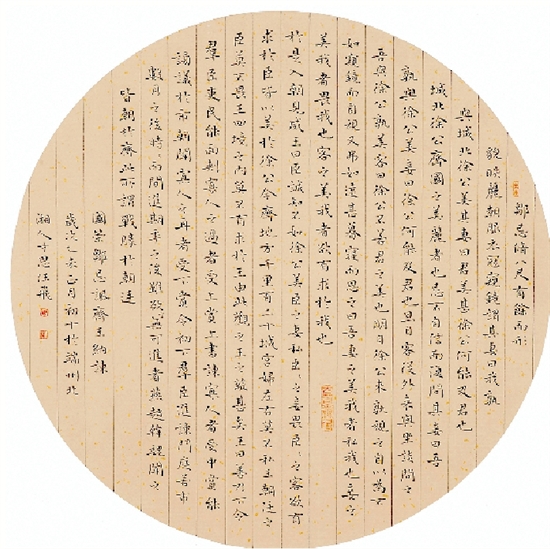 鄒忌脩八尺有餘而形
貌昳麗朝服衣冠窺鏡謂其妻曰我孰
與城北徐公美其妻曰君美甚徐公何能及君也
城北徐公齊國之美麗者也忌不自信而復問其妾曰吾
孰與徐公美妾曰徐公何能及君也旦日客從外來與坐談問之
吾與徐公孰美客曰徐公不若君之美也明日徐公來孰視之自以為不
如窺鏡而自視又弗如遠甚暮寢而思之曰吾妻之美我者私我也妾之
美我者畏我也客之美我者欲有求於我也
於是入朝見威王曰臣誠知不如徐公美臣之妻私臣臣之妾畏臣臣之客欲有
求於臣皆以美於徐公今齊地方千里百二十城宮婦左右莫不私王朝廷之
臣莫不畏王四境之內莫不有求於王由此觀之王之蔽甚矣王曰善乃下令
羣臣吏民能面刺寡人之過者受上賞上書諫寡人者受中賞能
謗議於市朝聞寡人之耳者受下賞令初下羣臣進諫門庭若市
數月之後時時而間進期年之後雖欲言無可進者燕趙韓魏聞之
皆朝於齊此所謂戰勝於朝廷
國策鄒忌諷齊王納諫
歲次 月初十於端州北
湘人